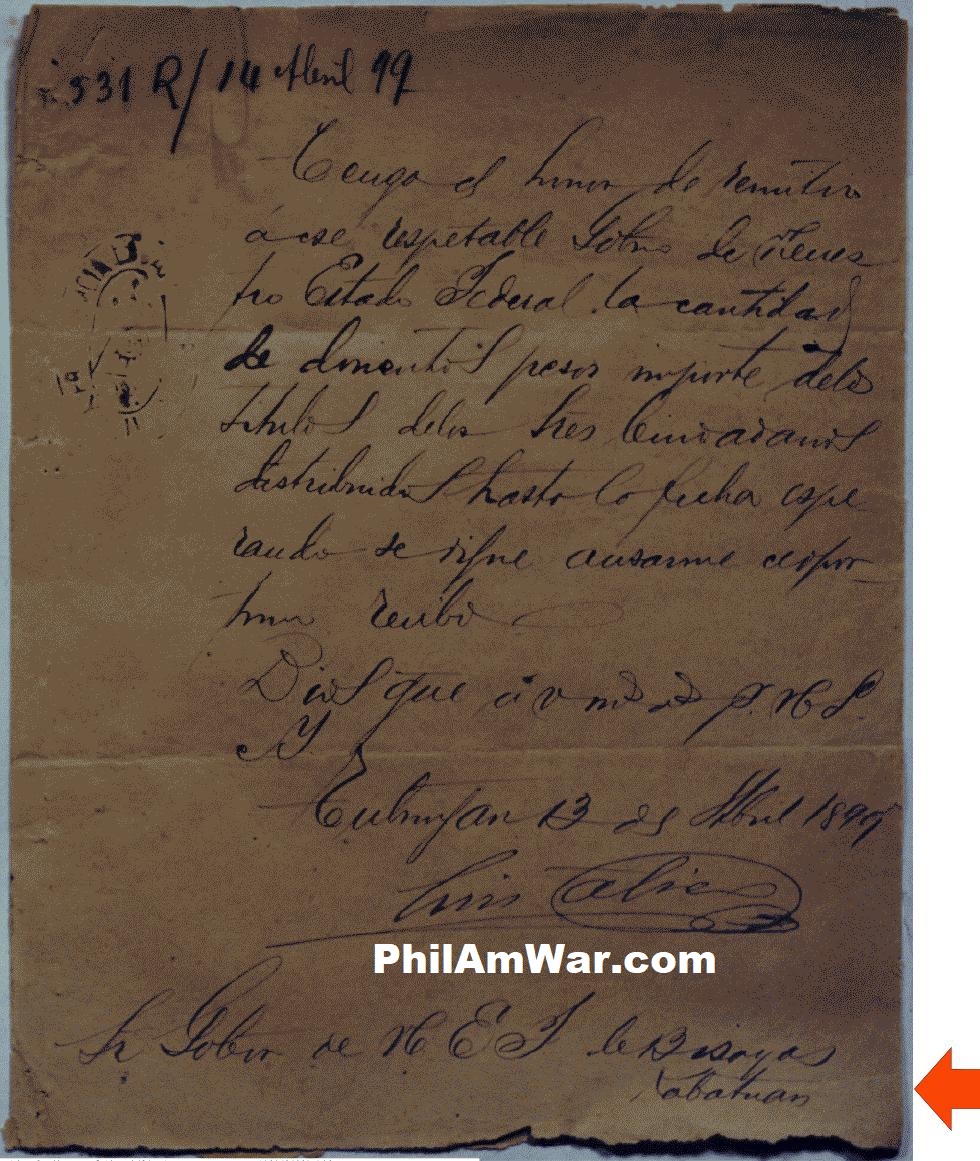 531 R/ 14 Abril 99
Tengo el honor de remitir
á ese respetable Gobno de Nues
tro Estado Federal la cantidad
de doscientos pesos importe delos
titulos delos tres Ciudadanos
distribuidos hasta la fecha espe
rando se digne acusarme el opor-
tuno recibo
Dios gue á v. ms as p. N S.
Y.
Tubungan 13 de Abril 1899
Luis
PhilAmWar.com
Sr Gobor de N E F de Bisayas
Cabatuan